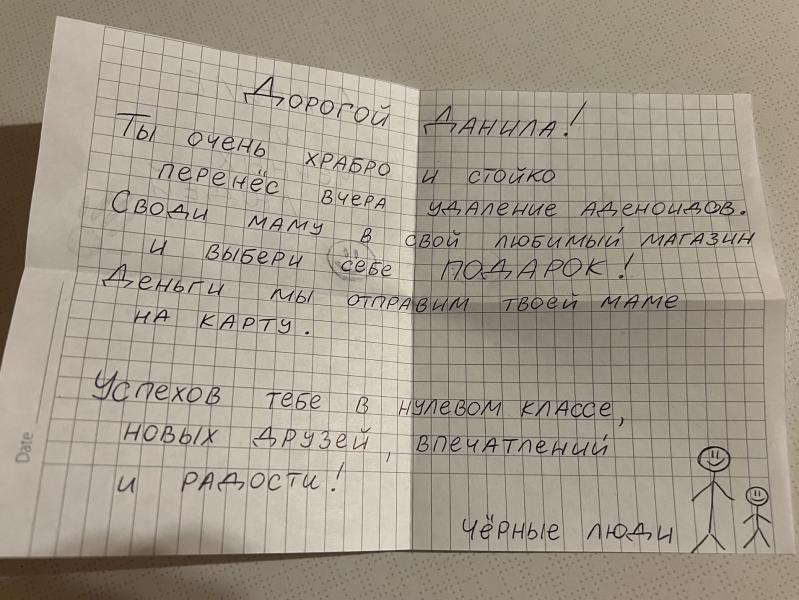 Дорогой Данила!
Ты очень храбро и стойко
перенёс вчера удаление аденоидов.
Своди маму в свой любимый магазин
и выбери себе ПОДАРОК!
Деньги мы отправим твоей маме
на карту.
Успехов тебе в нулевом классе,
новых друзей, впечатлений
и радости!
Чёрные люди
Date